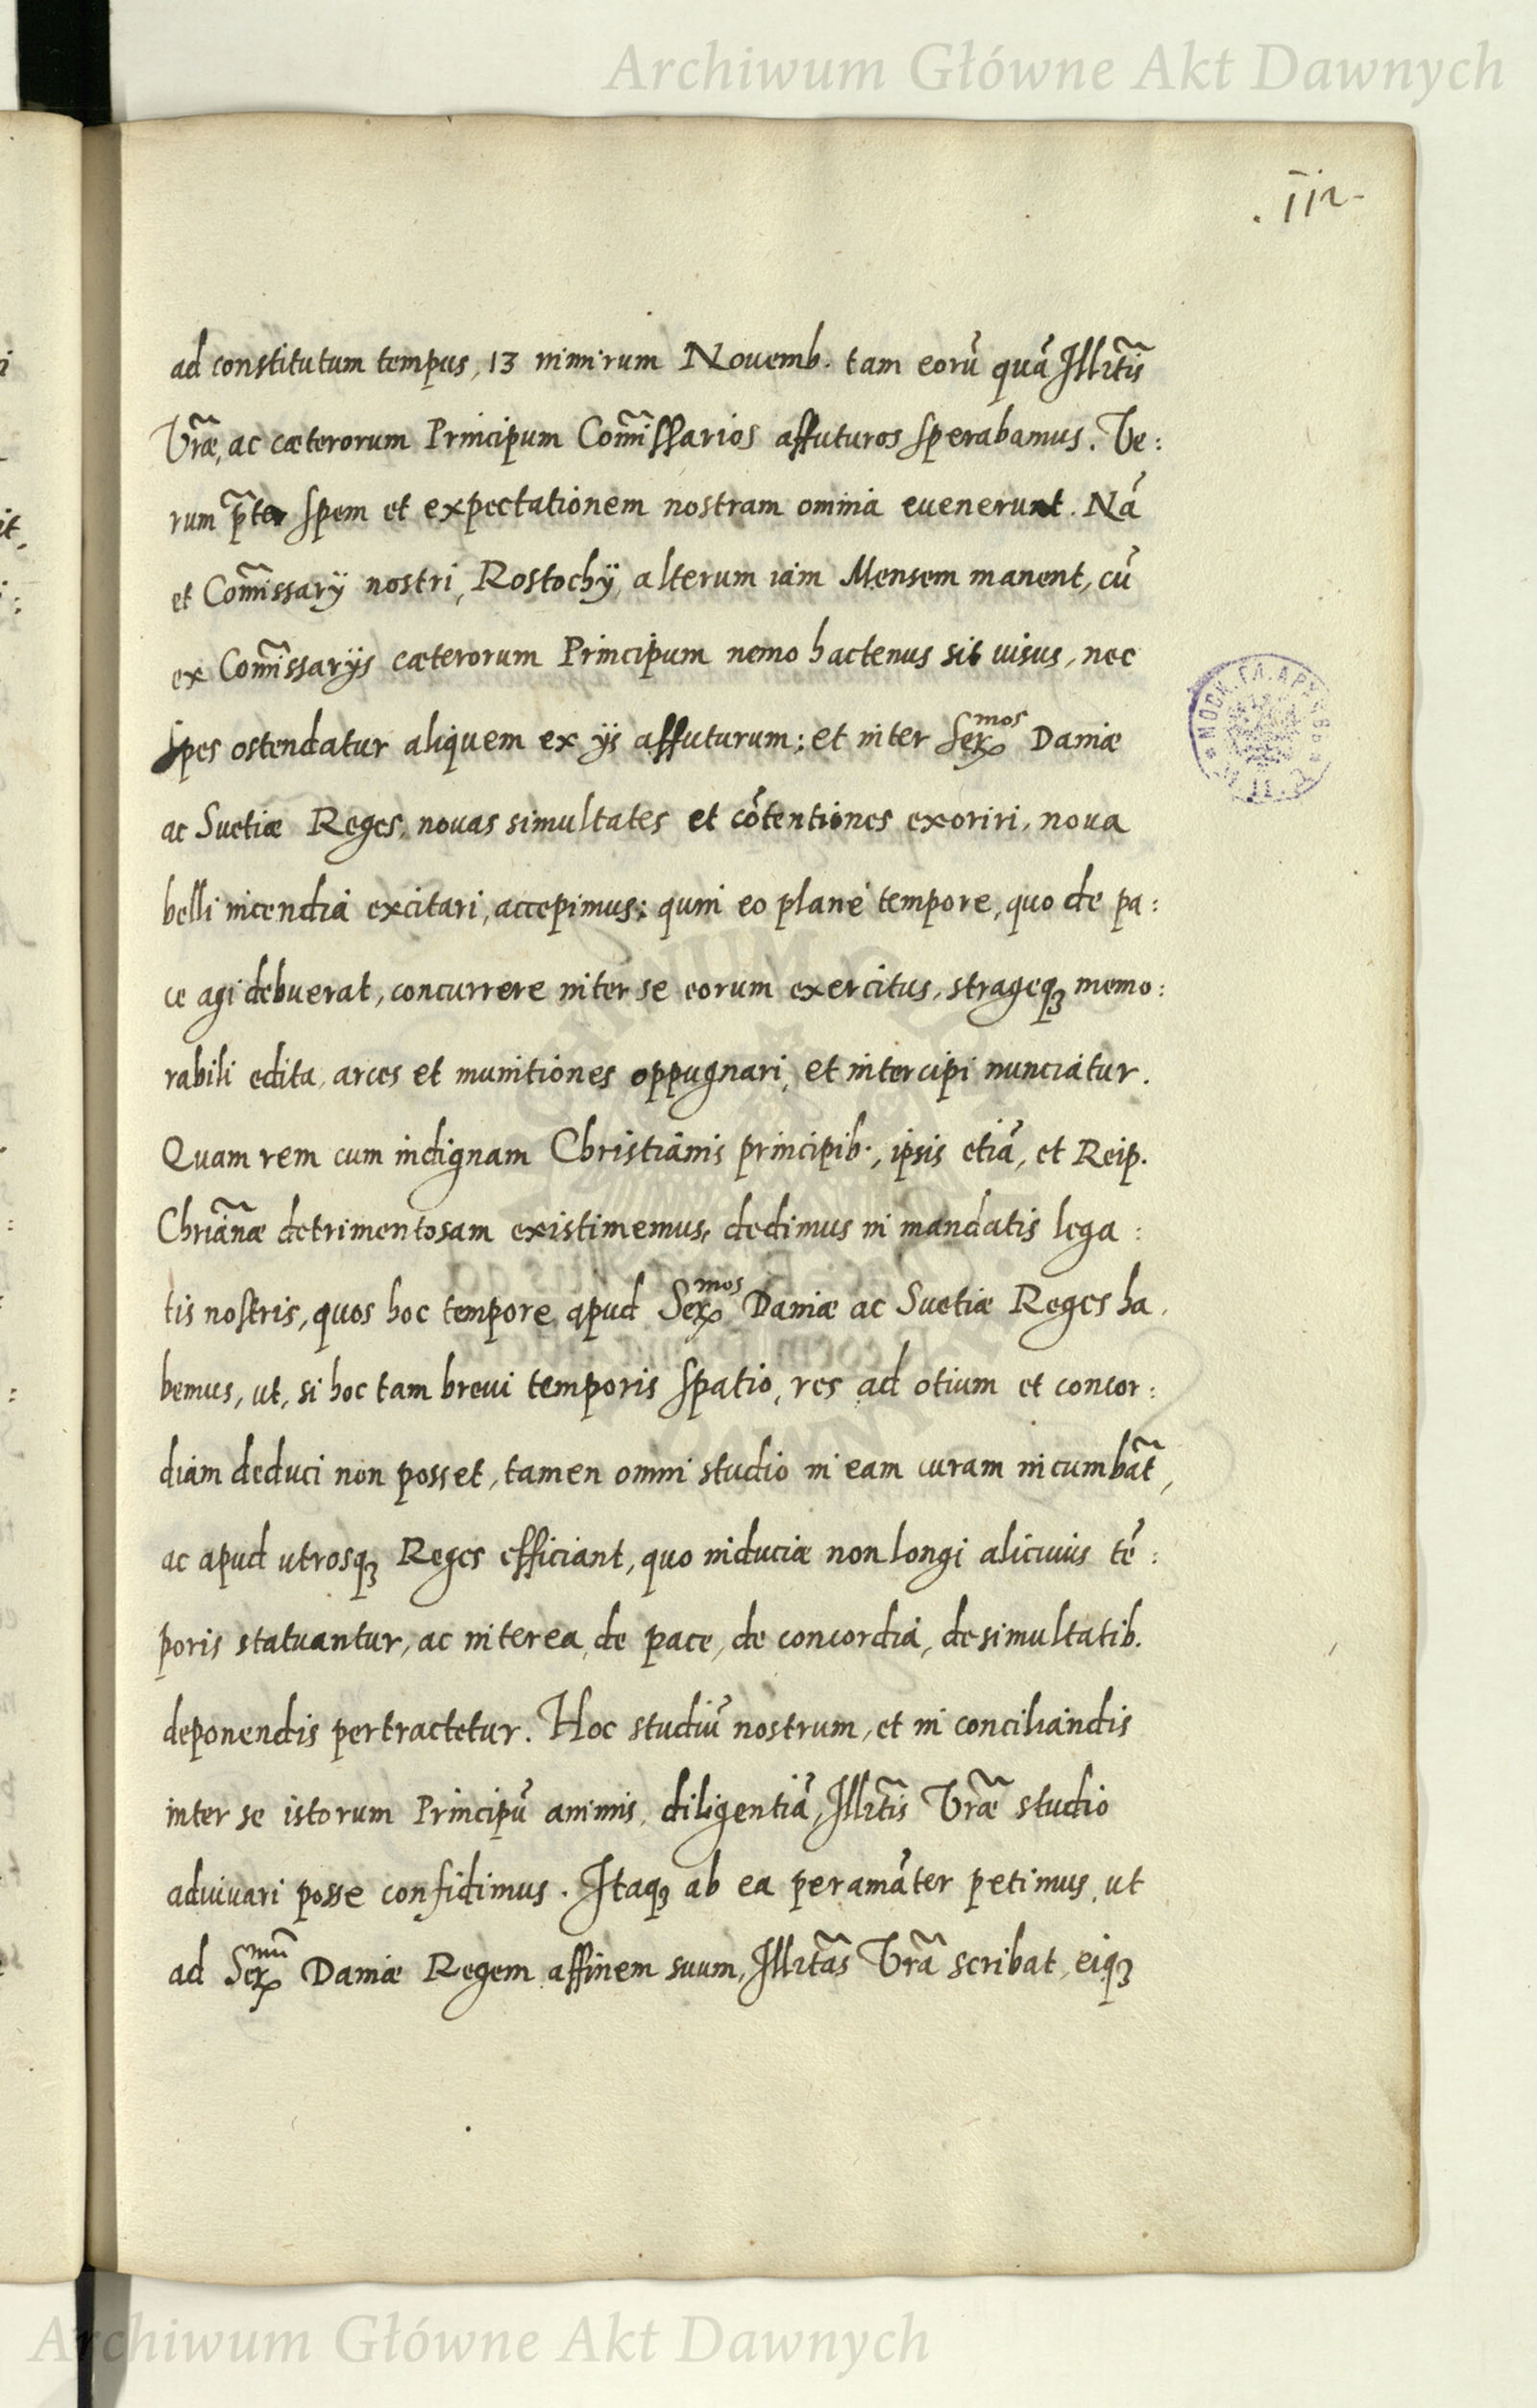 Archiwum Główne Akt Dawnych
. 112 -
ad constitutum tempus, 13 nimirum Nouemb. tam eorũ quã Illr̃tis
Vr̃æ, ac cæterorum Principum Com̃issarios affuturos sperabamus. Ve:
rum p̃ter spem et expectationem nostram omnia euenerunt. Nã
et Com̃issarÿ nostri, Rostochÿ, alterum iam Mensem manent, cũ
ex Com̃issarÿs cæterorum Principum nemo hactenus sit uisus, nec
spes ostendatur aliquem ex ÿs affuturum; et inter Ser.mos Daniæ
ac Suetiæ Reges, nouas simultates et cõtentiones exoriri, noua
belli incendia excitari, accepimus; quin eo planè tempore, quo de pa:
ce agi debuerat, concurrere inter se eorum exercitus, strageqȝ memo:
rabili edita, arces et munitiones oppugnari, et intercipi nunciatur.
Quam rem cum indignam Christianis principib., ipsis etiã, et Reip.
Chriãnæ detrimentosam existimemus, dedimus in mandatis lega:
tis nostris, quos hoc tempore apud Ser.mos Daniæ ac Suetiæ Reges ha,
bemus, ut, si hoc tam breui temporis spatio, res ad otium et concor:
diam deduci non posset, tamen omni studio in eam curam incumbãt,
ac apud utrosqȝ Reges efficiant, quo induciæ non longi alicuius tẽ:
poris statuantur, ac interea, de pace, de concordia, de simultatib.
deponendis pertractetur. Hoc studiũ nostrum, et in conciliandis
inter se istorum Principũ animis, diligentiã, Illr̃tis Vr̃æ studio
adiuuari posse confidimus. Itaqȝ ab ea peramãter petimus, ut
ad Ser.mũ Daniæ Regem affinem suum, Illr̃tas Vr̃a scribat, eiqȝ
Archiwum Główne Akt Dawnych